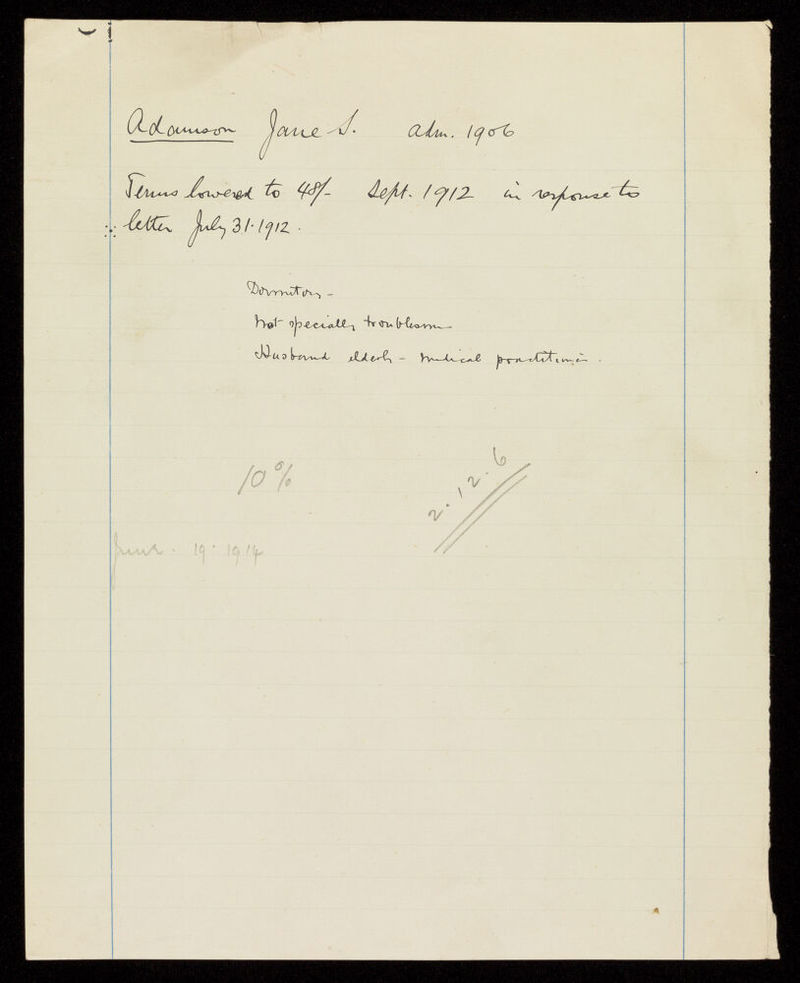 Adamson Jane S. adm. 1906
Terms lowered to 48/- Sept. 1912 in response to
letter July 31.1912.
Dormitory -
Not specially troublesome
Husband elderly - medical practitioner.
10%
2.12.6
June. 19. 1914